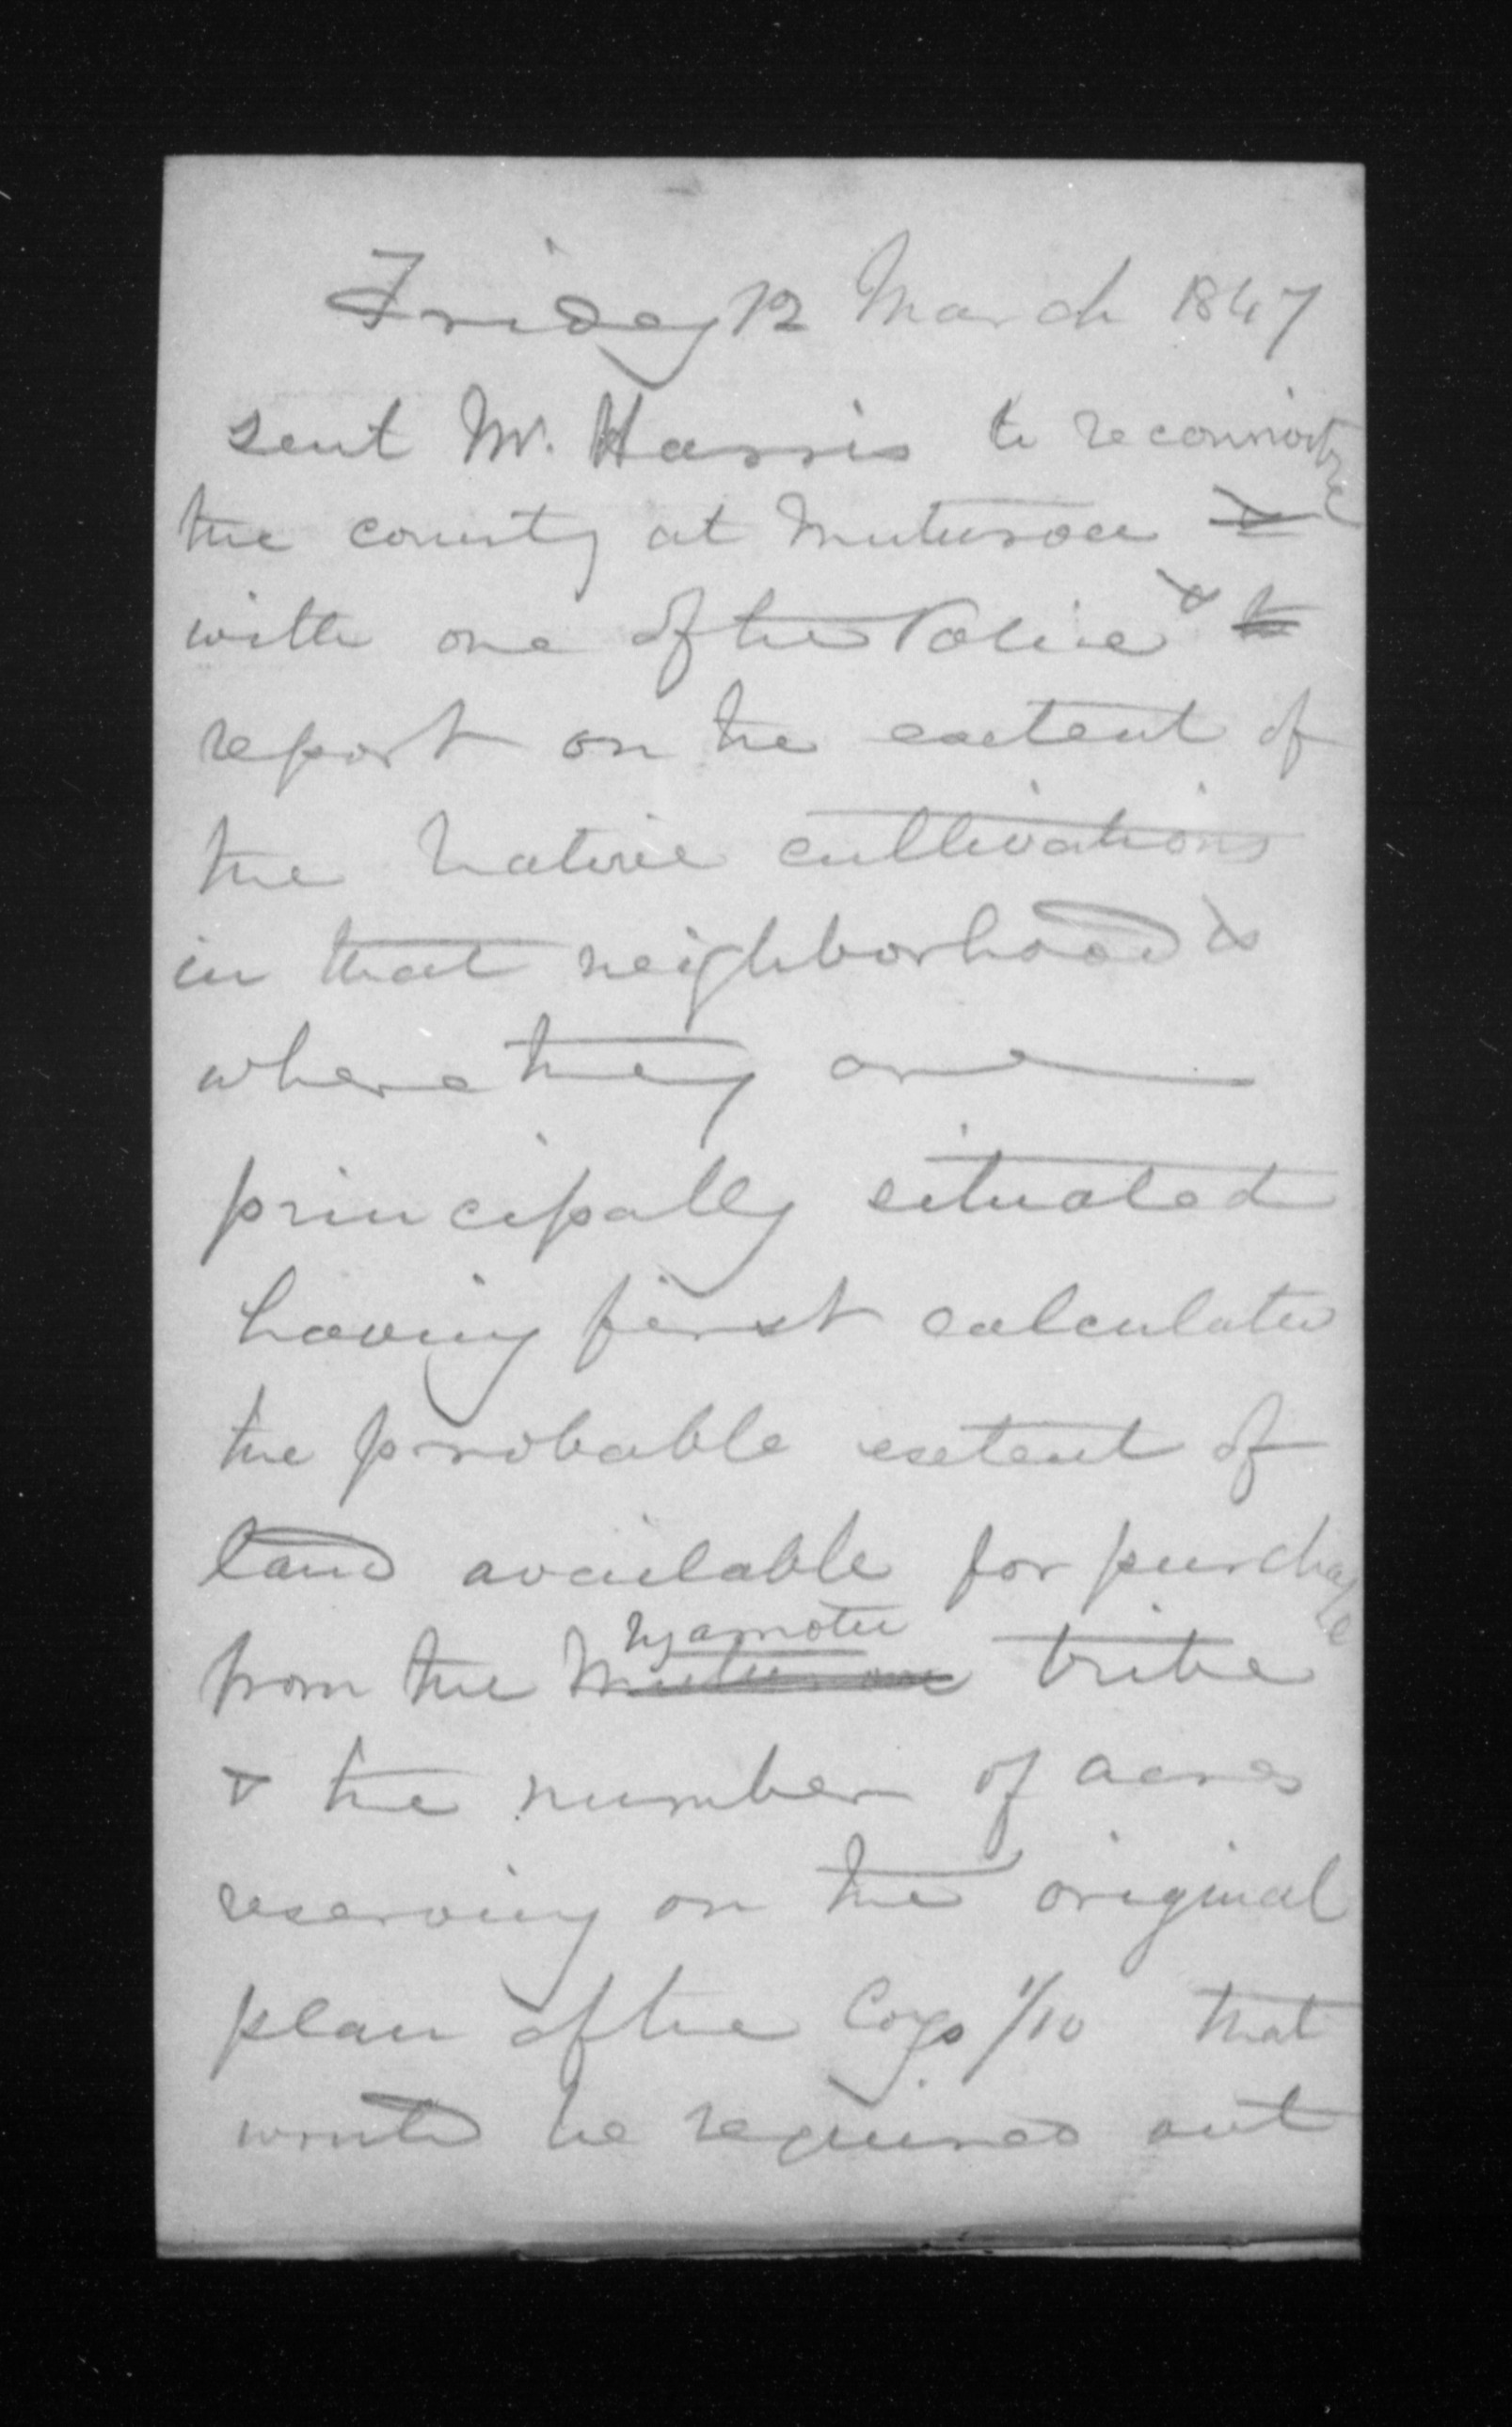 Friday 12 March 1847
sent Mr. Harris to reconnoitre
the county at Muturoa &
with one of the Police & to
report on the extent of
the Native cultivations
in that neighborhood &
where they are
principally situated
having first calculated
the probable extent of
land available for purchase
from the Muturoa Ngamotu tribe
& the number of acres
reserving on the original
plan of the Coys 1/10 that
would be required out